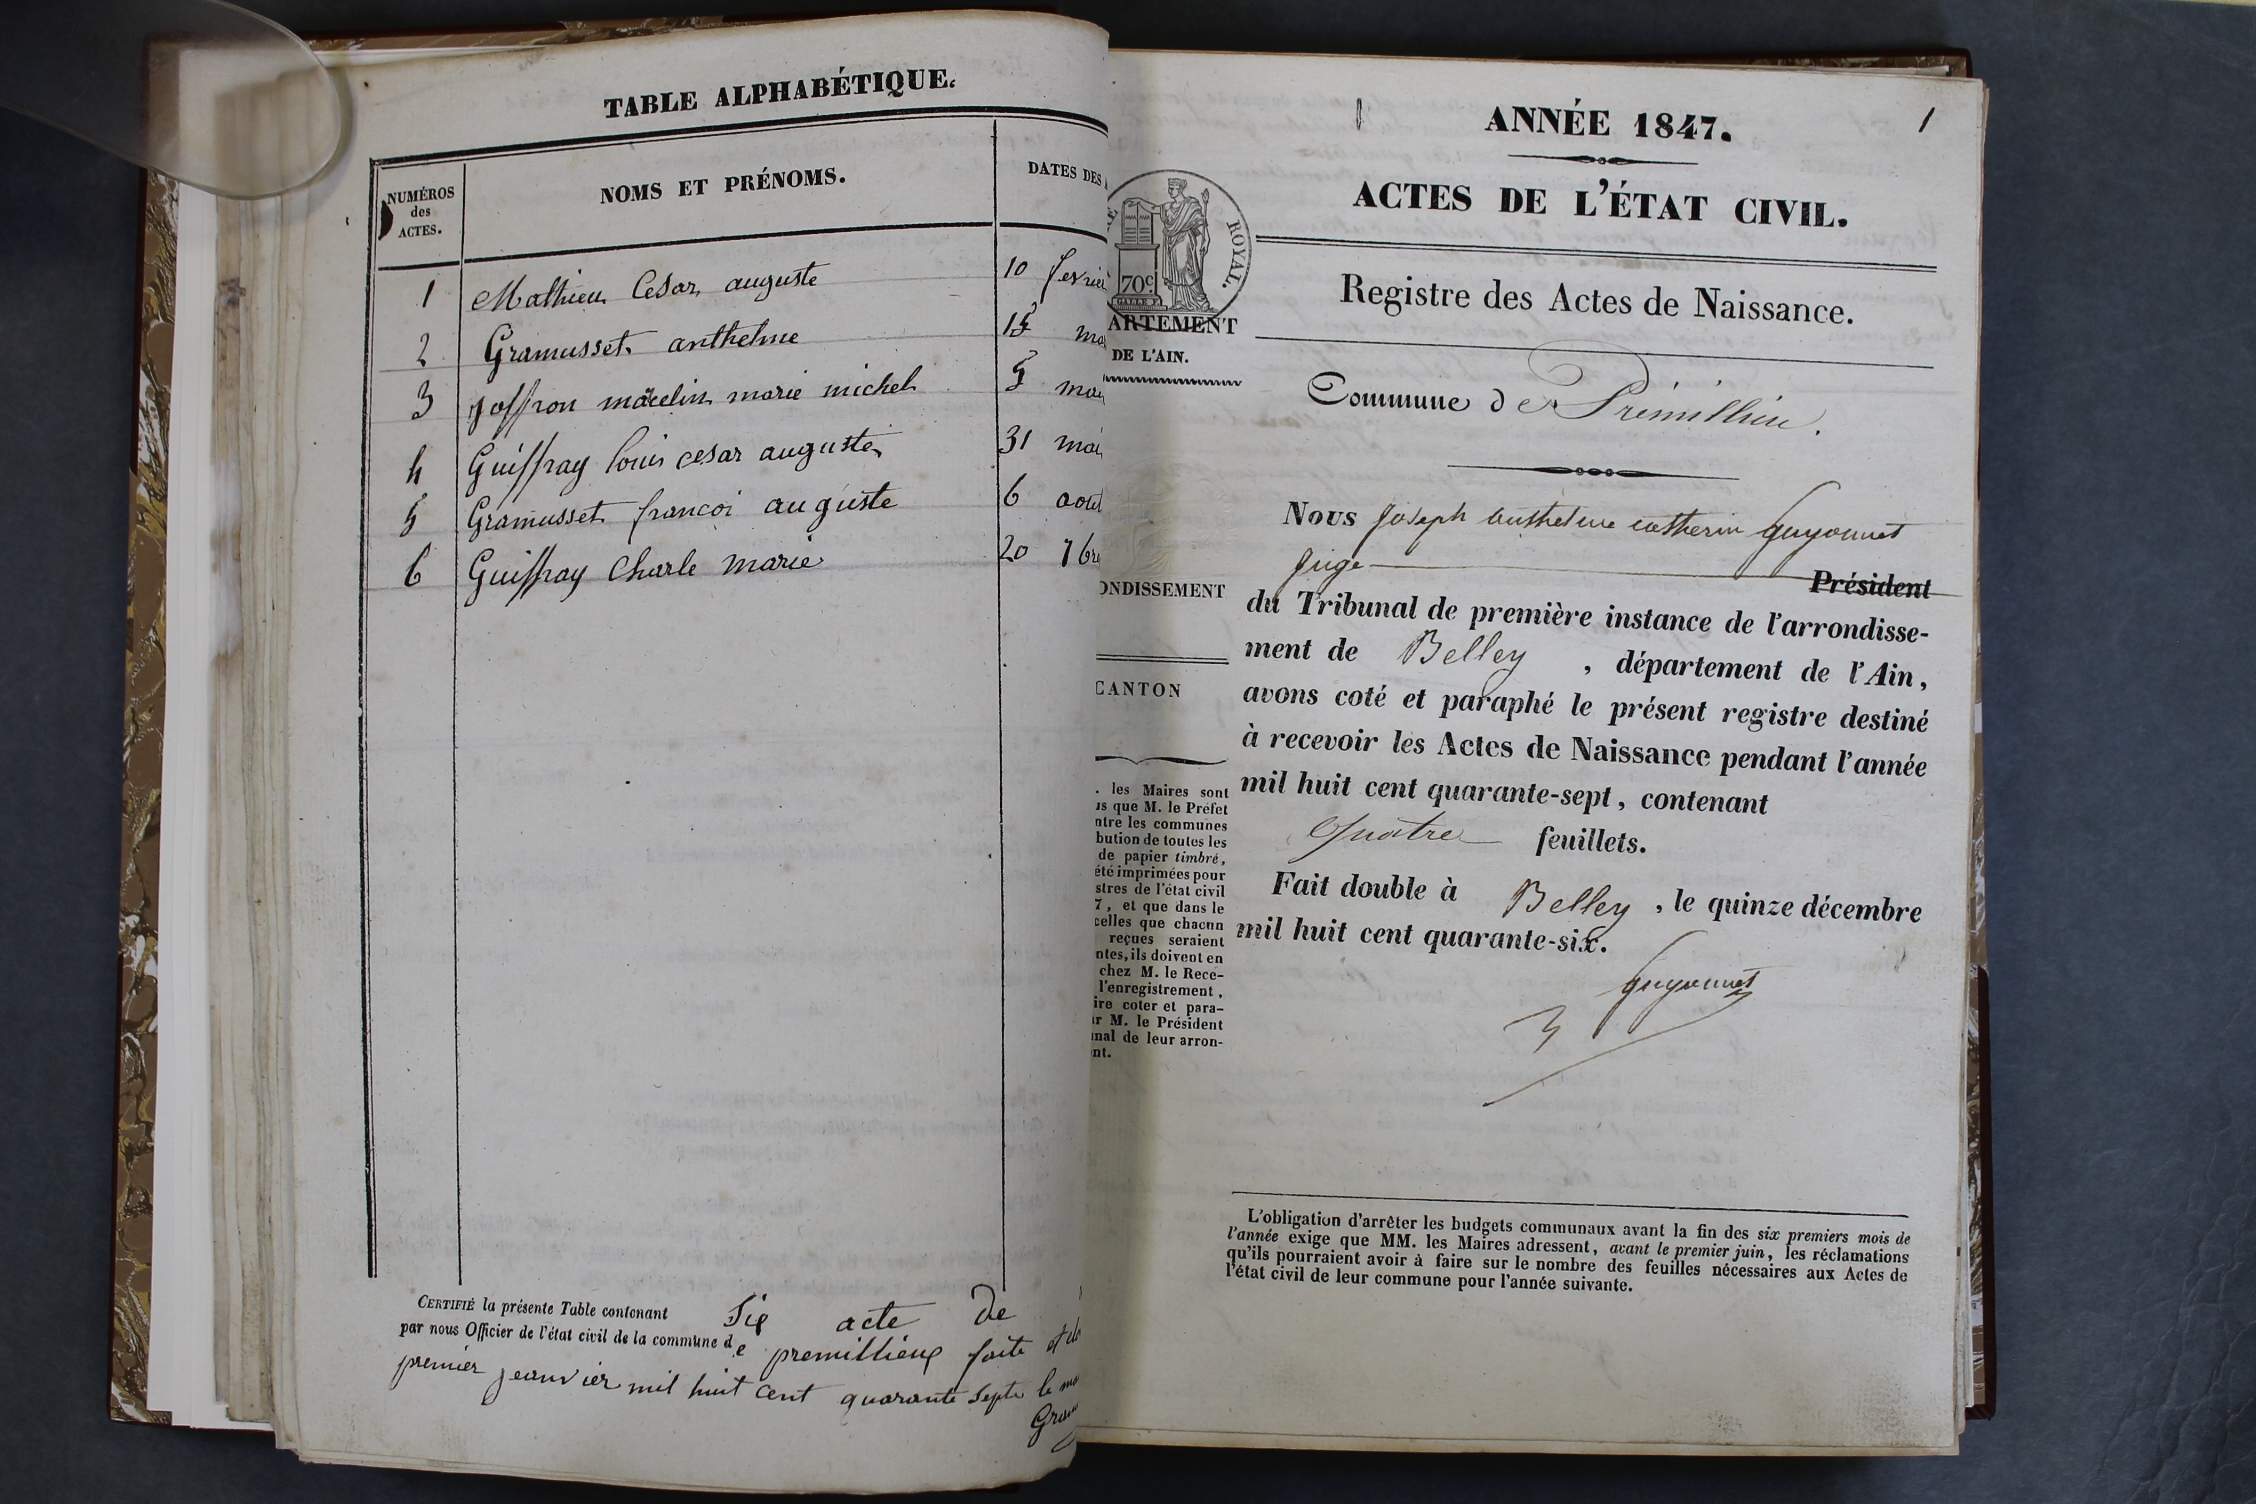 TABLE ALPHABÉTIQUE.
NUMÉROS
des
ACTES.
NOMS ET PRÉNOMS.
DATES DES
1 Mathieu Cesar auguste 10 fevrier
2 Gramusset anthelme 15
3 Joffron marcelin marie michel 5
4 Guiffray louis cesar auguste 31 mai
5 Gramusset francoi auguste 6 aout
6 Guiffray Charle marie 20 7bre
CERTIFIÉ la présente Table contenant Six acte de
par nous Officier de l'état civil de la commune de premillieux faite et
premier jeanvier mil huit cent quarante septe le
ANNÉE 1847.
1
ACTES DE L'ÉTAT CIVIL.
ROYAL.
70c.
ARTEMENT
DE L'AIN.
Registre des Actes de Naissance.
Commune de Prémillieu.
Nous Joseph Anthelme catherin Guyonnet
Juge Président
du Tribunal de première instance de l'arrondisse-
ment de Belley , département de l'Ain,
avons coté et paraphé le présent registre destiné
à recevoir les Actes de Naissance pendant l'année
mil huit cent quarante-sept, contenant
Quatre feuillets.
Fait double à Belley , le quinze décembre
mil huit cent quarante-six.
Guyonnet
ONDISSEMENT
CANTON
. les Maires sont
us que M. le Préfet
ntre les communes
bution de toutes les
de papier timbré,
été imprimées pour
stres de l'état civil
7, et que dans le
celles que chacun
reçues seraient
ntes, ils doivent en
chez M. le Rece-
l'enregistrement,
ire coter et para-
ar M. le Président
unal de leur arron-
nt.
L'obligation d'arrêter les budgets communaux avant la fin des six premiers mois de
l'année exige que MM. les Maires adressent, avant le premier juin, les réclamations
qu'ils pourraient avoir à faire sur le nombre des feuilles nécessaires aux Actes de
l'état civil de leur commune pour l'année suivante.